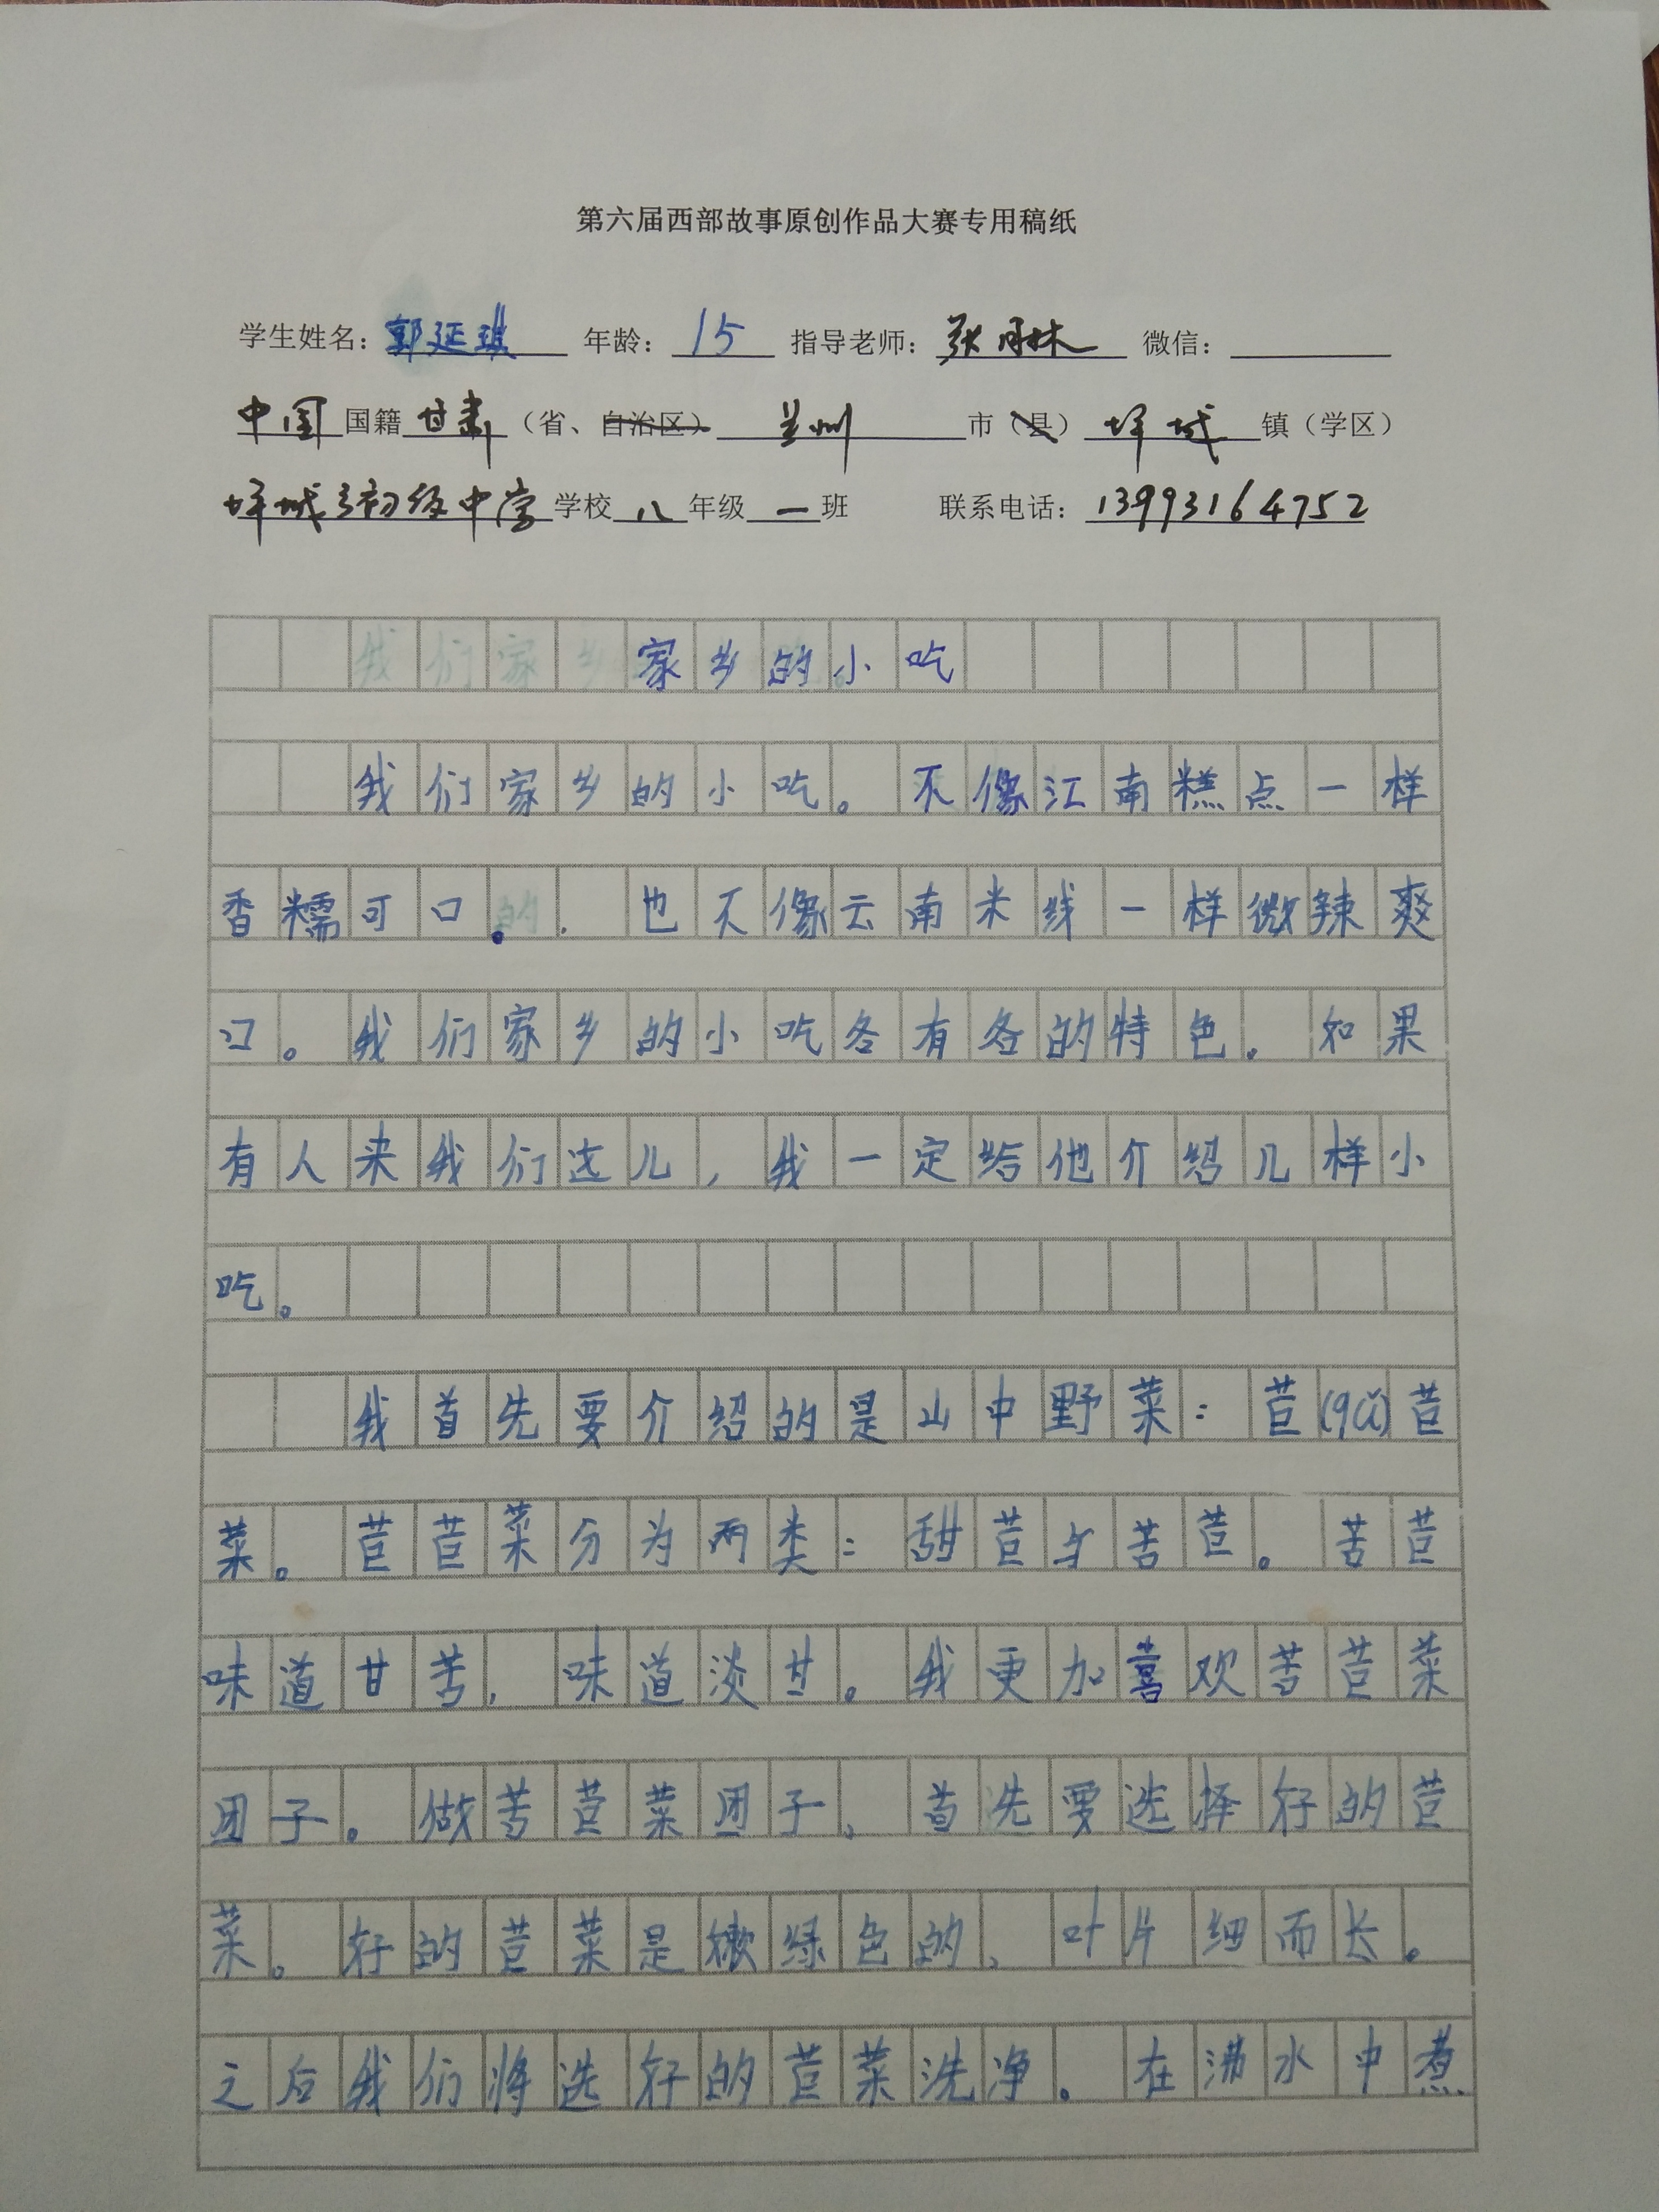 第六届西部故事原创作品大赛专用稿纸
学生姓名：郭延琪 年龄：15 指导老师：张丹林 微信：
中国国籍甘肃（省、自治区）兰州市（县）坪城镇（学区）
坪城初级中学学校八年级一班 联系电话：13993164752
家乡的小吃
我们家乡的小吃。不像江南糕点一样
香糯可口。.也不像云南米线一样微辣爽
口。我们家乡的小吃各有各的特色。如果
有人来我们这儿，我一定给他介绍几样小
吃。
我首先要介绍的是山中野菜：苣(qǔ)苣
菜。苣苣菜分为两类：甜苣与苦苣。苦苣
味道甘苦，味道淡甘。我更加喜欢苦苣菜
团子。做苦苣菜团子、首先要选择好的苣
菜。好的苣菜是嫩绿色的、叶片细而长。
之后我们将选好的苣菜洗净。在沸水中煮